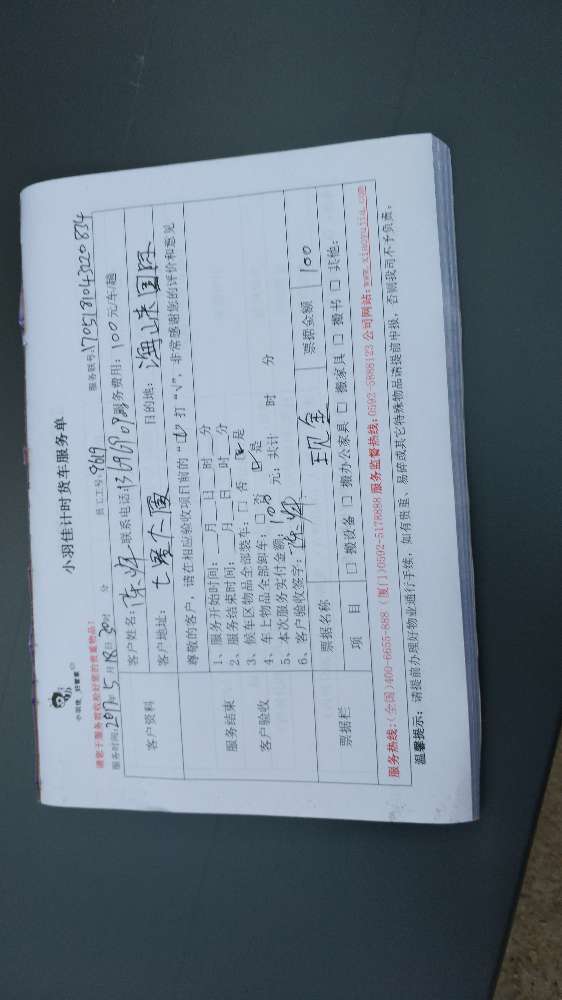 小羽佳 好管家
小羽佳计时货车服务单
请您于服务前收检好您的贵重物品!
服务时间:2017年5月18日30时 分 员工工号:9619 服务联号:1705181043020834
客户资料 客户姓名: 陈辉 联系电话 服务费用: 100元/车/趟
客户地址: 七星大厦 目的地: 海峡国际
尊敬的客户,请在相应验收项目前的“□”打“√”,非常感谢您的评价和意见
服务结束
客户验收
1、服务开始时间: 月 日 时 分
2、服务结束时间: 月 日 时 分
3、候车区物品全部装车: □ 否 ☑ 是
4、车上物品全部卸车: □ 否 ☑ 是
5、本次服务实付金额: 100 元; 共计 时 分
6、客户验收签字: 陈辉
票据栏 票据名称 现金 票据金额 100
项 目 □ 搬设备 □ 搬办公家具 □ 搬家具 □ 搬书 □ 其他:
服务热线:(全国)400-6655-888 (厦门)0592-5178888 服务监督热线:0592-5888123 公司网站:www.xiaoyujia.com
温馨提示: 请提前办理好物业通行手续,如有贵重、易碎或其它特殊物品请提前申报,否则我司不予负责。